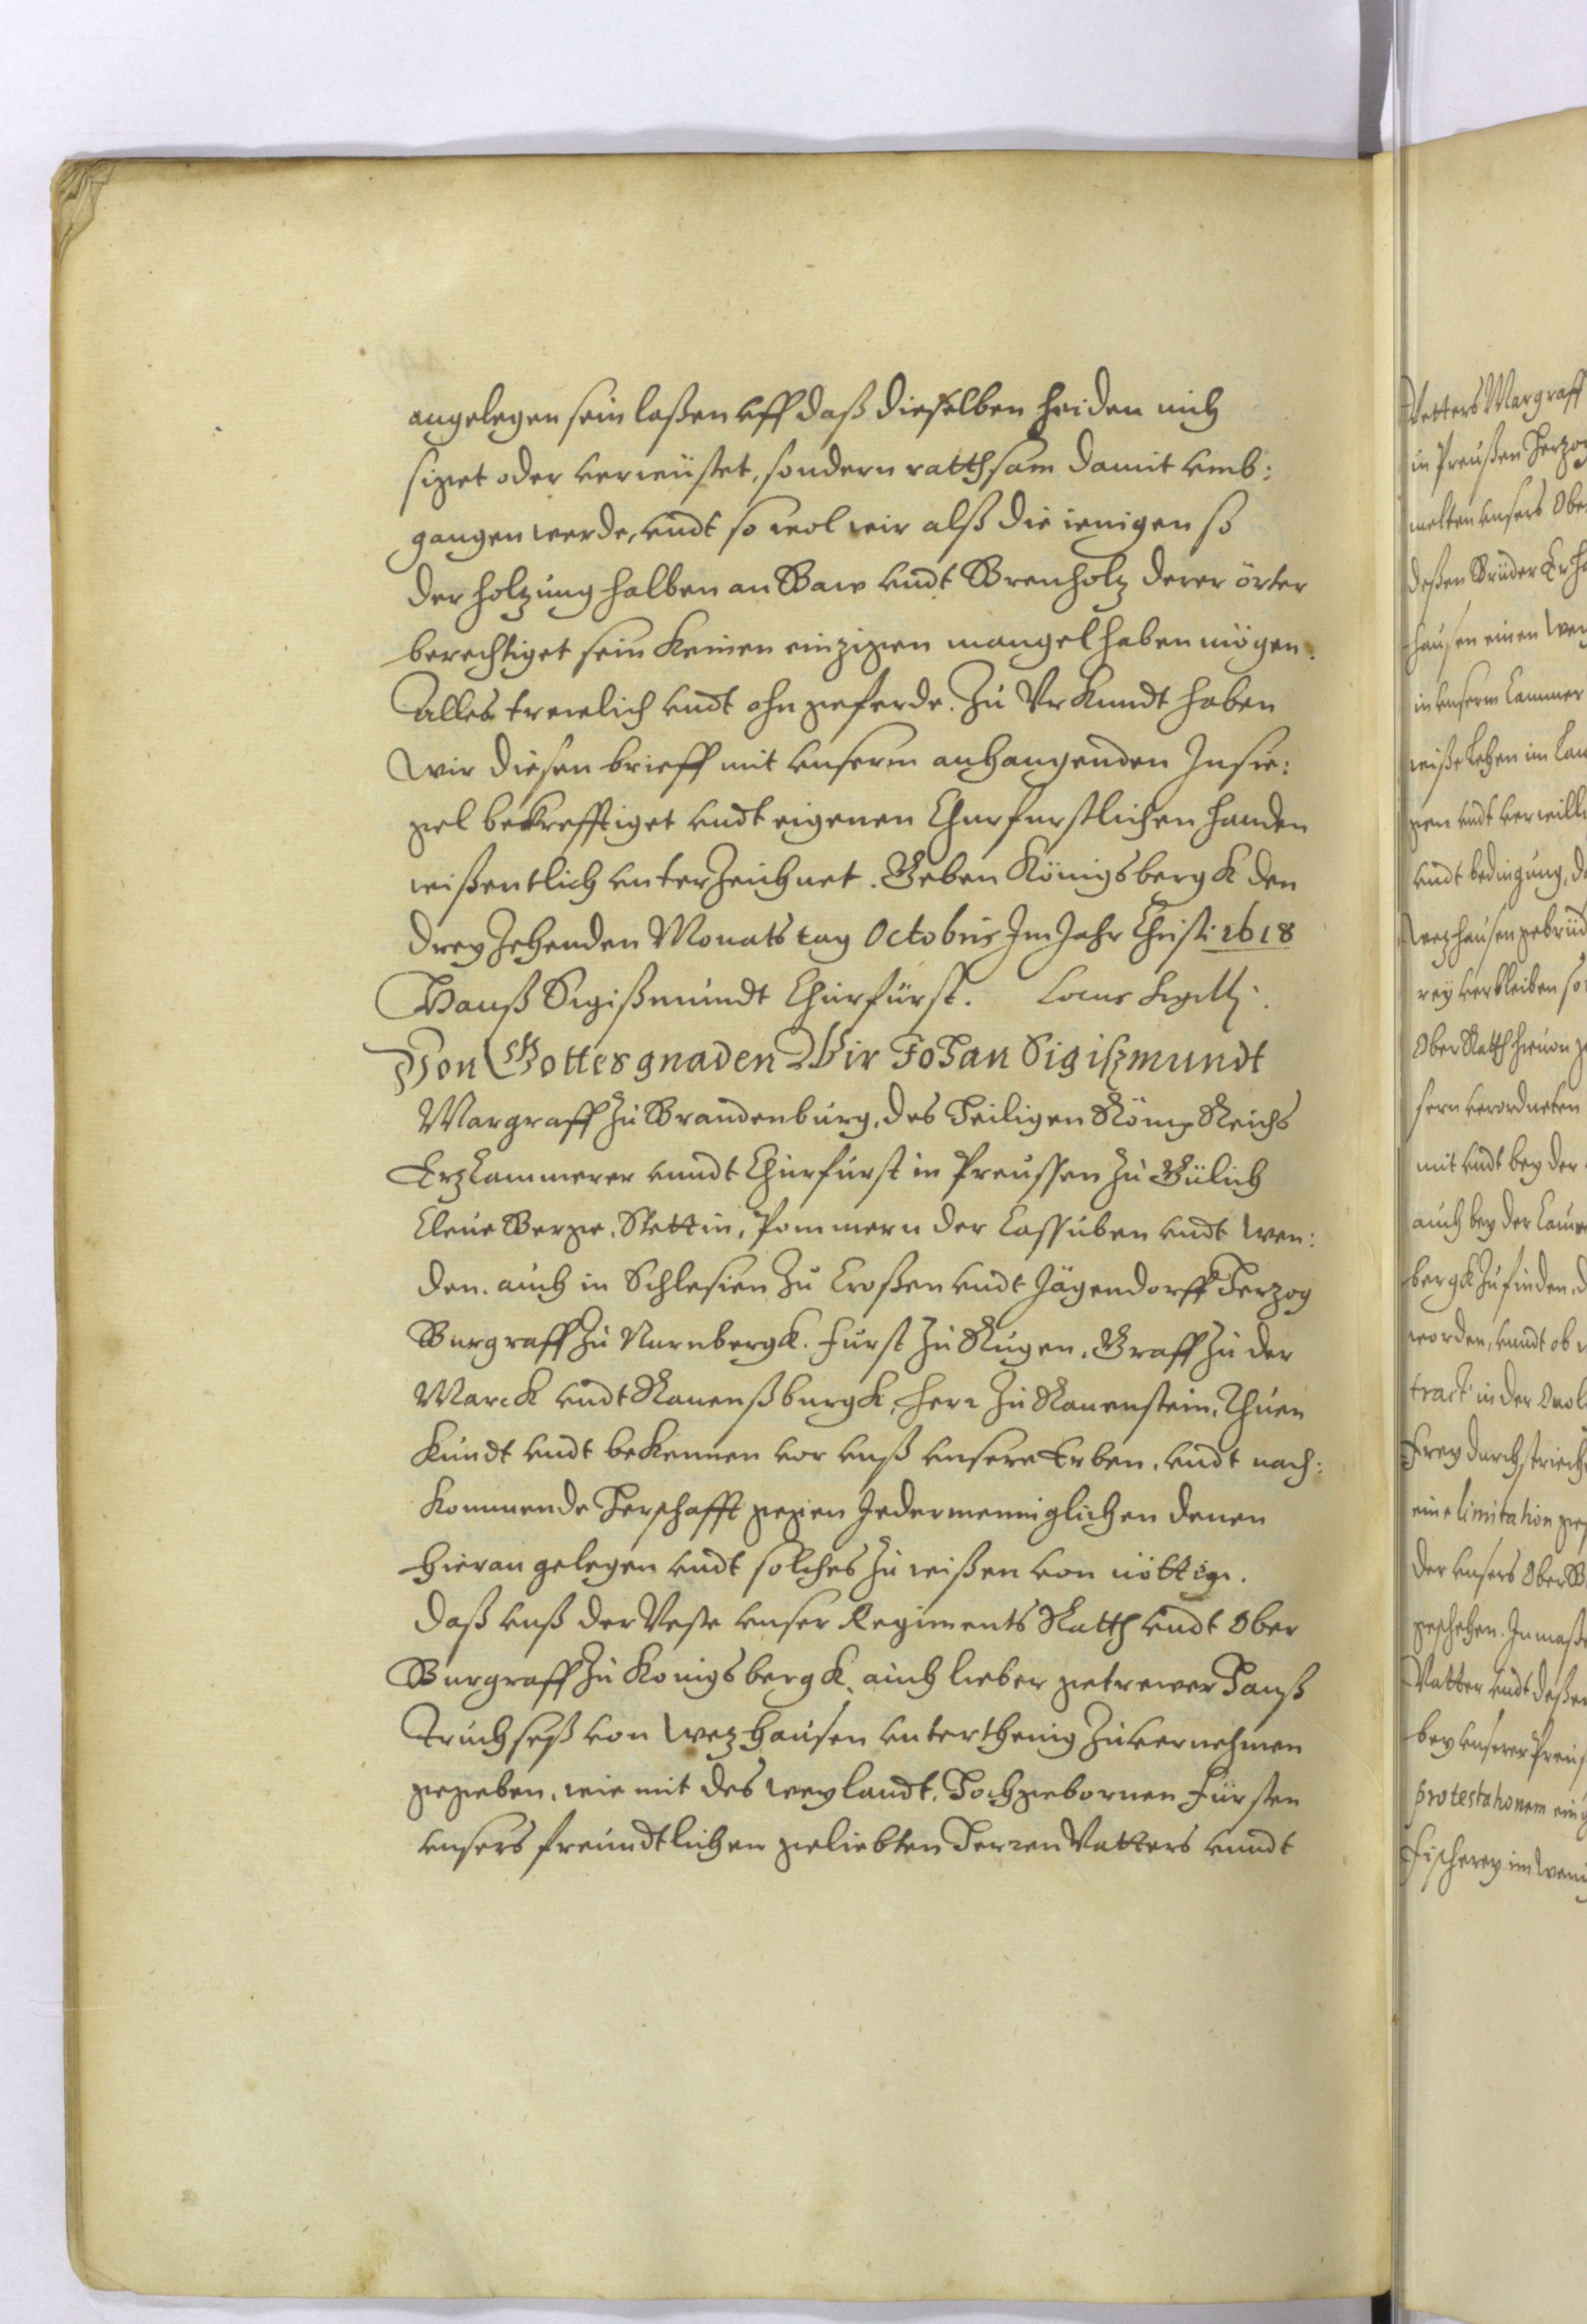 angelegen sein laßen vff daß dieselben heiden nich
siget oder verwüstet, sondern ratthsam damit vmb:
gangen werde, vndt so wol wir alß die ienigen so
der holzung halben an Baw vndt Brenholz derer örter
berechtiget sein keinen einzigen mangel haben mögen.
Alles trewlich vndt ohn geferde. Zu Vrkundt haben
wir diesen brieff mit vnserm anhangenden Insie:
gel bekrefftiget vndt eigenen Churfurstlichen handen
wißentlich vnterzeichnet. Geben Königsbergk den
dreyzehenden Monats tag Octobris Im Jahr Christi 1618
Hanß Sigißmundt Churfürst. Locus Sigilli.
Von Gottes gnaden Wir Johan Sigißmundt
Margraff zu Brandenburg, des Heiligen Römg Reichs
Erzkammerer vnndt Churfurst in Preussen zu Gülich
Cleue Berge, Stettin, Pommern der Cassuben vndt wen:
den. auch in Schlesien zu Croßen vndt Jägendorff Herzog
Burgraff zu Nurnbergk. Furst zu Rugen, Graff zu der
Marck vndt Rauenßburgk, herr zu Rauenstein, Thuen
kundt vndt bekennen vor vnß vnsere Erben, vndt nach:
kommende Herschafft gegen Jedermenniglichen denen
hieran gelegen vndt solches zu wißen von nötten.
daß vnß der Veste vnser Regiments Ratth vndt Ober
Burgraff zu Konigsbergk, auch lieber getrewer Hanß
Truchseß von wezhausen vnterthenig zuuernehmen
gegeben, wie mit des weylandt, Hochgebornen Fürsten
vnsers freundtlichen geliebten Herren Vatters vnndt
Vetters Margraff
in Preußen Herzog
melten vnsers Obe
deßen Brüder Erha
hausen einen wey
in vnserm Cammer
weiße Lehen im Lan
gen vndt verwilli
vndt bedingung, d
wezhausen gebrüd
rey verbleiben so
Ober Ratth hieuon z
sern verordneten
mit vndt bey der
auch bey der Cam
bergk zu finden, d
worden, vnndt ob
tract in der
Frey durchstrich
eine limitation ge
der vnsers Ober B
geschehen. In maße
Vatter vndt deßen
bey vnserer Preus
protestationem ein
Fischerey im